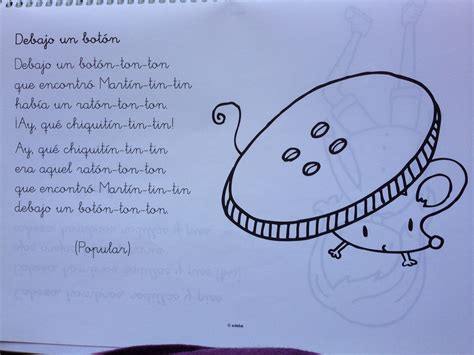 Debajo un botón
Debajo un botón-ton-ton
que encontró Martín-tin-tin
había un ratón-ton-ton.
¡Ay, qué chiquitín-tin-tin!
Ay, qué chiquitín-tin-tin
era aquel ratón-ton-ton
que encontró Martín-tin-tin
debajo un botón-ton-ton.
(Popular)